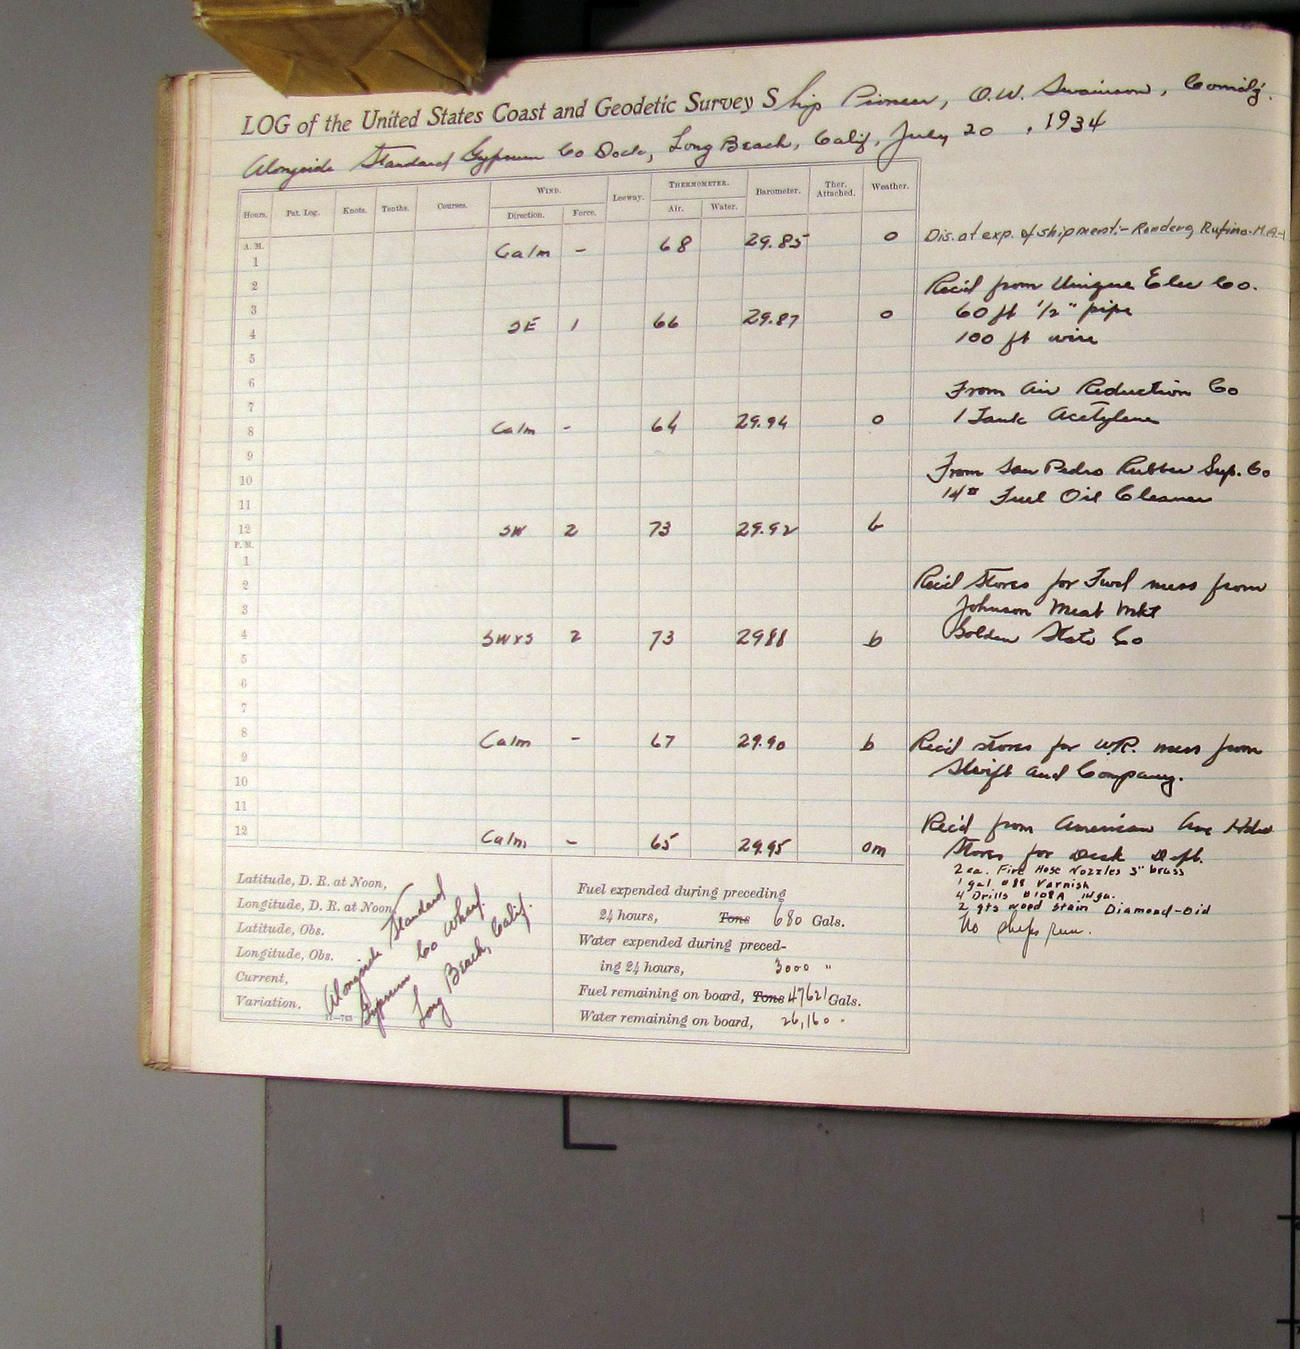 LOG of the United States Coast and Geodetic Survey Ship Pioneer, O.W. Swainson, Comd'g.
Alongside Standard Gypsum Co Dock, Long Beach, Calif, July 20, 1934
Hours. Pat. Log. Knots. Tenths. Courses. WIND. Direction. Force. Leeway. THERMOMETER. Air. Water. Barometer. Ther. Attached. Weather.
A. M. Calm - 68 29.85 o Dis. at exp. of shipment:- Rufino-M.A.-1
1
2 Rec'd from Unique Elec Co.
3 60 ft 1/2" pipe
4 SE 1 66 29.87 o 100 ft wire
5
6 From Air Reduction Co
7 1 Tank Acetylene
8 Calm - 64 29.94 o
9 From San Pedro Rubber Sup. Co
10 14# Fuel Oil Cleaner
11
12 SW 2 73 29.92 b
P. M.
1
2 Rec'd Stores for Fwd mess from
3 Johnson Meat Mkt
4 SWxS 2 73 2988 b Golden State Co
5
6
7
8 Calm - 67 29.90 b Rec'd stores for W.R. mess from
9 Swift and Company.
10
11
12 Calm - 65 29.95 om Rec'd from American
Stores for Deck Dept.
2 ea. Fire Hose Nozzles 3" brass
1 gal. #88 Varnish
4 Drills
2 qts wood stain Diamond-Oid
No ships run.
Latitude, D. R. at Noon,
Longitude, D. R. at Noon,
Latitude, Obs.
Longitude, Obs.
Current,
Variation,
11—763
Alongside Standard
Gypsum Co Wharf.
Long Beach, Calif.
Fuel expended during preceding
24 hours, Tons 680 Gals.
Water expended during preced-
ing 24 hours, 3000 "
Fuel remaining on board, Tons 47621 Gals.
Water remaining on board, 26,160 "